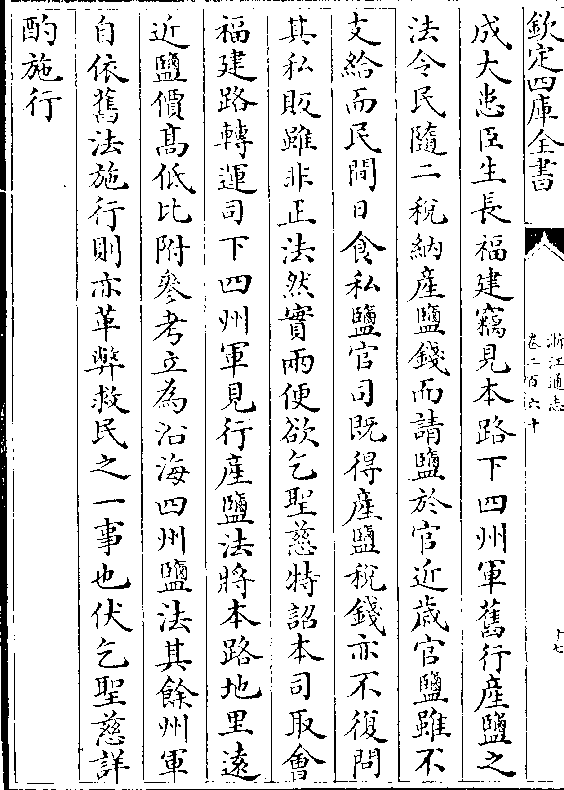 欽定四庫全書
浙江通志
卷二百六十
十七
成大患臣生長福建竊見本路下四州軍舊行產鹽之
法令民隨二稅納產鹽錢而請鹽於官近歲官鹽雖不
支給而民間日食私鹽官司既得產鹽稅錢亦不復問
其私販雖非正法然實兩便欲乞聖慈特詔本司取會
福建路轉運司下四州軍見行產鹽法將本路地里遠
近鹽價髙低比附參考立為沿海四州鹽法其餘州軍
自依舊法施行則亦革弊救民之一事也伏乞聖慈詳
酌施行